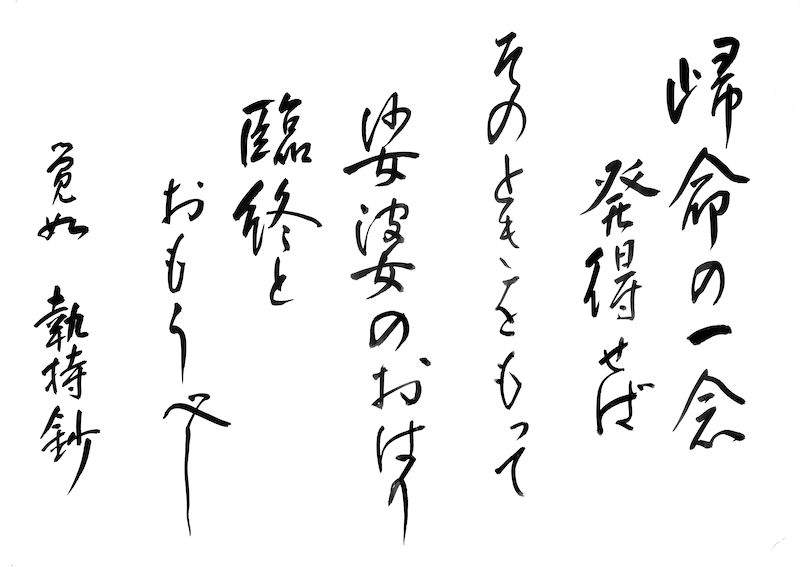 帰命の一念
発得せば
そのときをもって
娑婆のおはり
臨終と
おもうべし
覚如 執持鈔